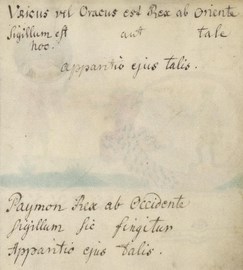 Uricus vel Oracus est Rex ab Oriente
Sigillum est aut tale
hoc.
Apparitio ejus talis.
Paymon Rex ab Occidente
Sigillum sic fingitur
Apparitio ejus talis.